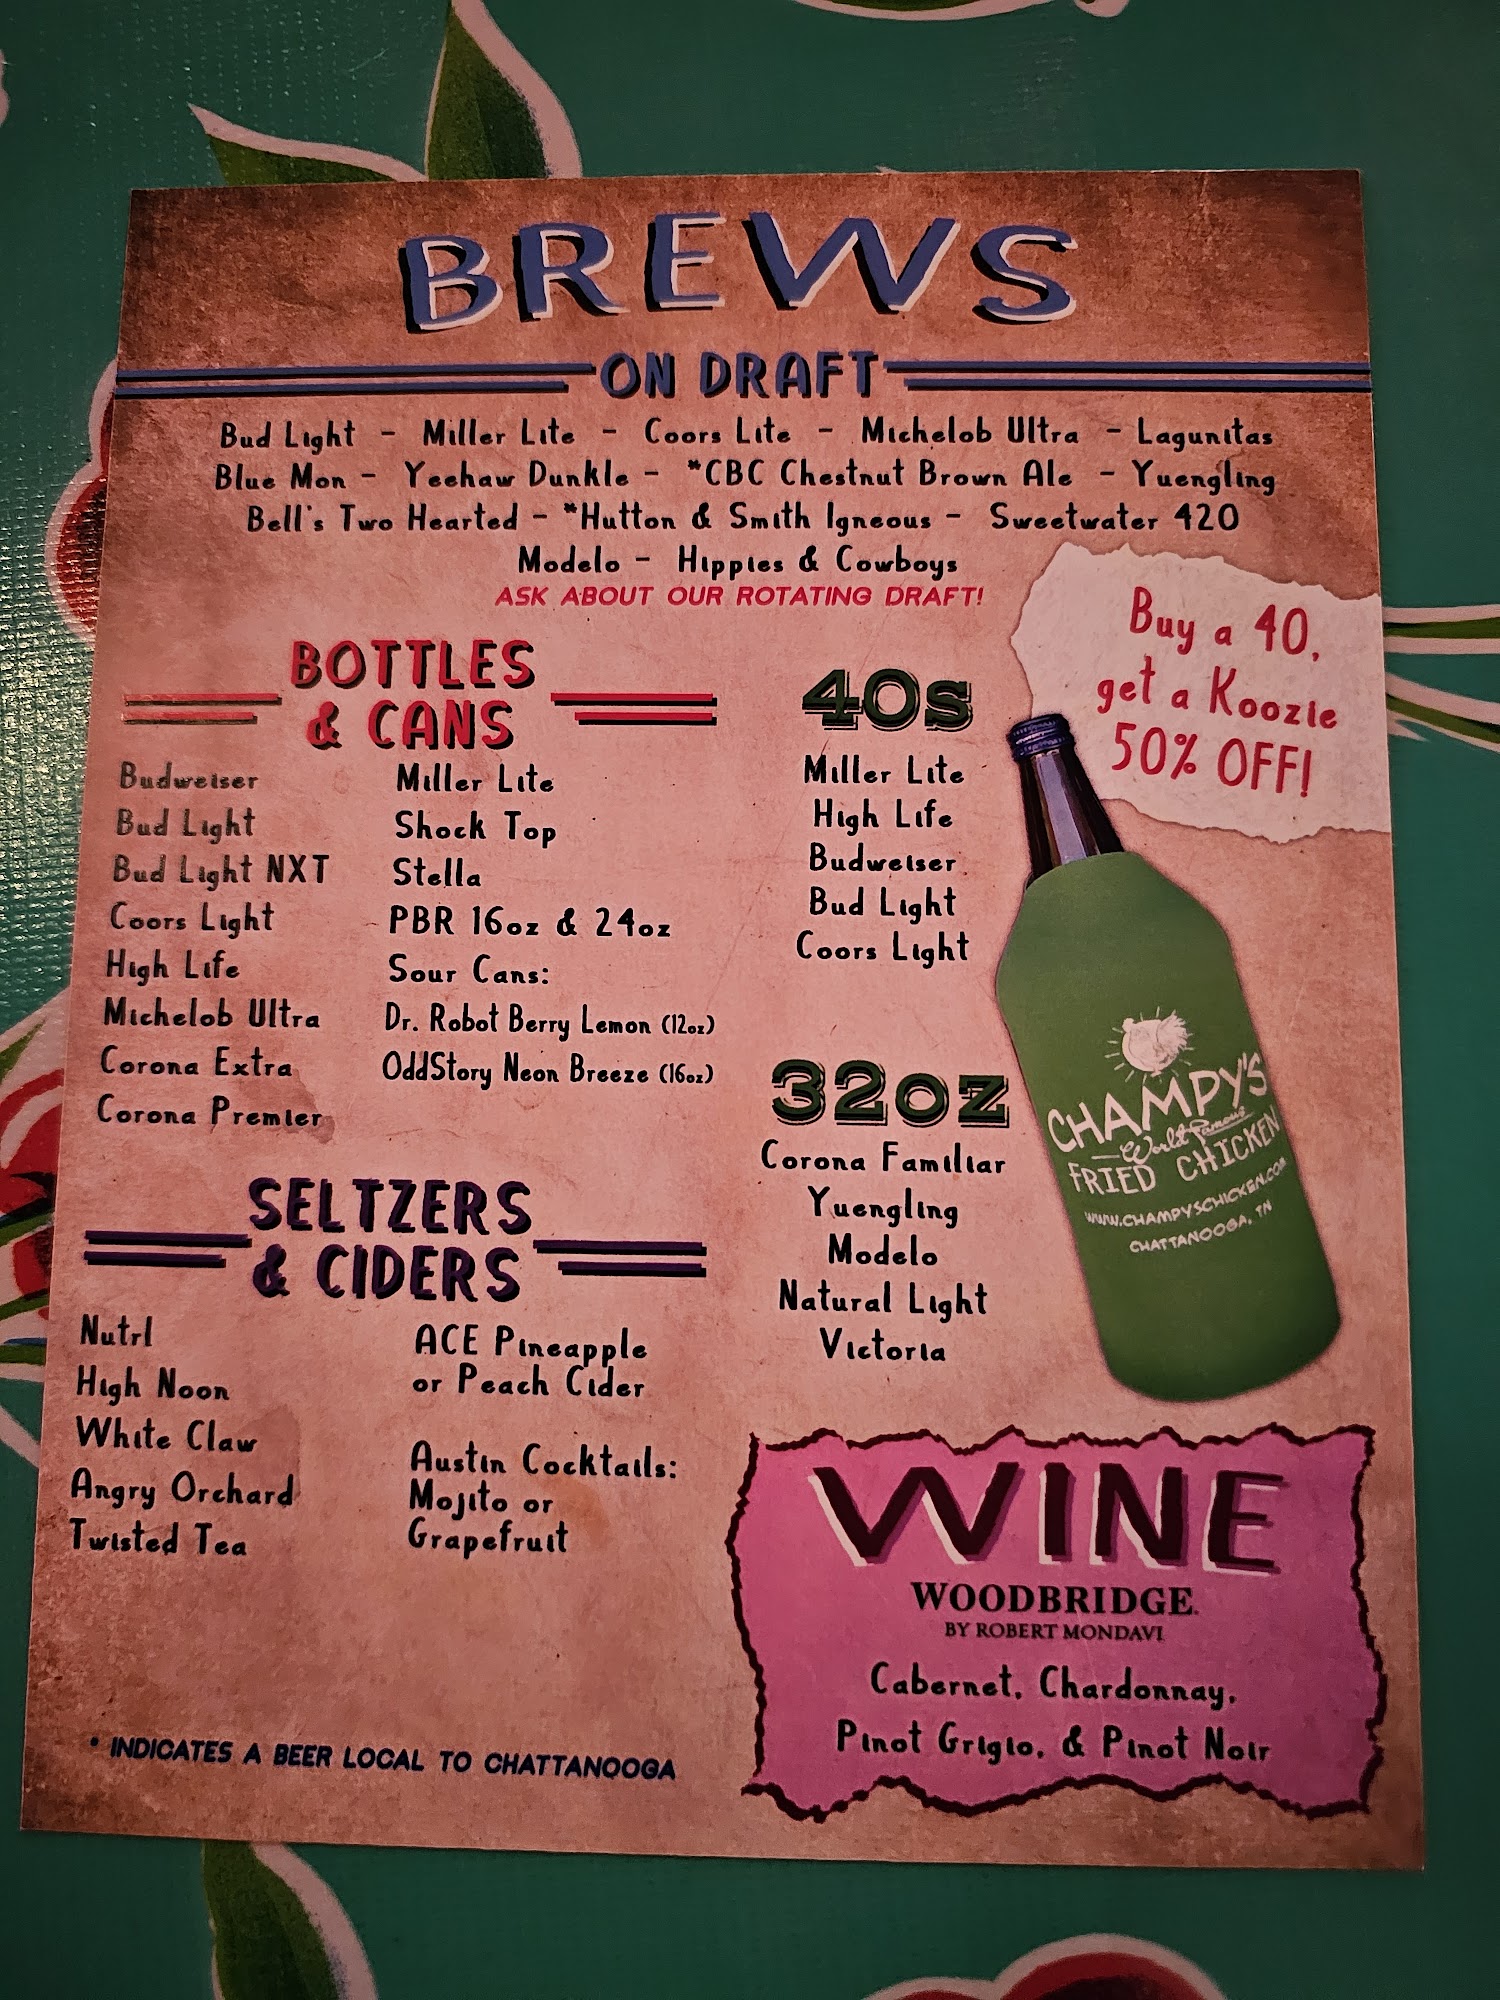 BREWS
ON DRAFT
Bud Light - Miller Lite - Coors Lite - Michelob Ultra - Lagunitas
Blue Mon - Yeehaw Dunkle - *CBC Chestnut Brown Ale - Yuengling
Bell's Two Hearted - *Hutton & Smith Igneous - Sweetwater 420
Modelo - Hippies & Cowboys
ASK ABOUT OUR ROTATING DRAFT!
Buy a 40,
get a Koozie
50% OFF!
BOTTLES
& CANS
Budweiser
Bud Light
Bud Light NXT
Coors Light
High Life
Michelob Ultra
Corona Extra
Corona Premier
Miller Lite
Shock Top
Stella
PBR 16oz & 24oz
Sour Cans:
Dr. Robot Berry Lemon (12oz)
OddStory Neon Breeze (16oz)
40s
Miller Lite
High Life
Budweiser
Bud Light
Coors Light
32oz
Corona Familiar
Yuengling
Modelo
Natural Light
Victoria
CHAMPY'S
World Famous
FRIED CHICKEN
WWW.CHAMPYSCHICKEN.COM
CHATTANOOGA, TN
SELTZERS
& CIDERS
Nutrl
High Noon
White Claw
Angry Orchard
Twisted Tea
ACE Pineapple
or Peach Cider
Austin Cocktails:
Mojito or
Grapefruit
WINE
WOODBRIDGE
BY ROBERT MONDAVI
Cabernet, Chardonnay,
Pinot Grigio, & Pinot Noir
* INDICATES A BEER LOCAL TO CHATTANOOGA